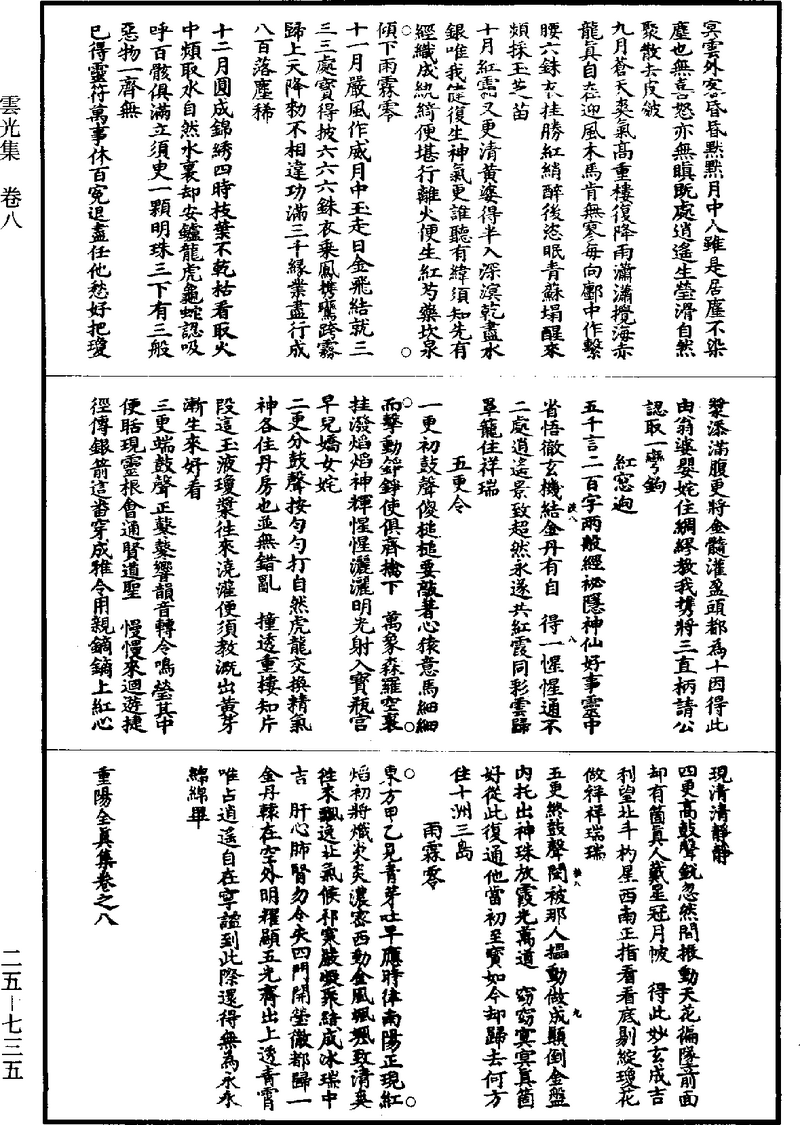 雲光集　卷八
冥雲外客昏昏點點月中八雖是居塵不染
塵也無喜怒亦無瞋旣處逍遙生瑩滑自然
聚散去皮皴
九月蒼天爽氣高重樓復降雨瀟瀟攪海赤
龍真自在迎風木馬肯無寥每向酆中作繫
腰六銖衣挂勝紅綃醉後恣眠青蘇塌醒來
頻採玉芝苗
十月紅雲又更清黃婆得半入深溟乾盡水
銀唯我從復生神氣更誰聽有緯須知先有
經織成紈綺便堪行離火便生紅芍藥坎泉
傾下雨霖零
十一月嚴風作威月中玉走日金飛結就三
三三處寶得披六六六銖衣乘鳳携鸞跨霧
歸上天降勑不相違功滿三千緣業盡行成
八百落塵稀
十二月圓成錦綉四時枝葉不乾枯看取火
中頻取水自然水裏却安鑪龍虎龜蛇認吸
呼百骸俱滿立須臾一顆明珠三下有三般
惡物一齊無
已得靈符萬事休百寃退盡任他愁好把瓊
漿添滿腹更將金髓灌盈頭都為十因得此
由翁婆嬰姹住綢繆教我携將三直柄請公
認取一彎鉤
紅窓迥
五千言二百字兩般經祕隱神仙好事靈中
省悟徹玄機結金丹有自　得一惺惺通不
二處逍遙景致超然永遂共紅霞同彩雲歸
罩籠住祥瑞
五更令
一更初鼓聲傻槌槌要敲著心猿意馬細細
而擊動錚錚使俱齊擒下　萬象森羅空裏
挂潑焰焰神輝惺惺灑灑明光射入寶瓶宮
早兒嬌女姹
二更分鼓聲按勻勻打自然虎龍交換精氣
神各住丹房也並無錯亂　撞透重樓知片
段這玉液瓊漿往來澆灌便須教溉出黃芽
漸生來好看
三更端鼓聲正鼕鼕響韻音轉令鳴瑩其中
便聒現靈根會通賢道聖　慢慢來迴遊捷
徑傳銀箭這番穿成雅令用親鏑鏑上紅心
現清清靜靜
四更高鼓聲銳忽然間振動天花徧墜前面
却有箇真人戴星冠月帔　得此妙玄成吉
利望北斗杓星西南正指看看底剔綻瓊花
做祥祥瑞瑞
五更終鼓聲閙被那人搵動做成顛倒金盤
內托出神珠放霞光萬道　窈窈冥冥真箇
好從此復通他當初至寶如今却歸去何方
住十洲三島
雨霖零
東方甲乙見青芽吐早應時律南陽正現紅
焰初將熾炎炎濃密西動金風颯颯致清爽
往來飄逸北氣候祁寒嚴凝聚結成冰瑞中
吉　肝心肺腎勿令失四門開瑩徹都歸一
金丹轅在空外明耀顯五光齊出上透青霄
唯占逍遙自在寧謐到此際還得無為永永
綿綿畢
重陽全眞集卷之八
二五—七三五